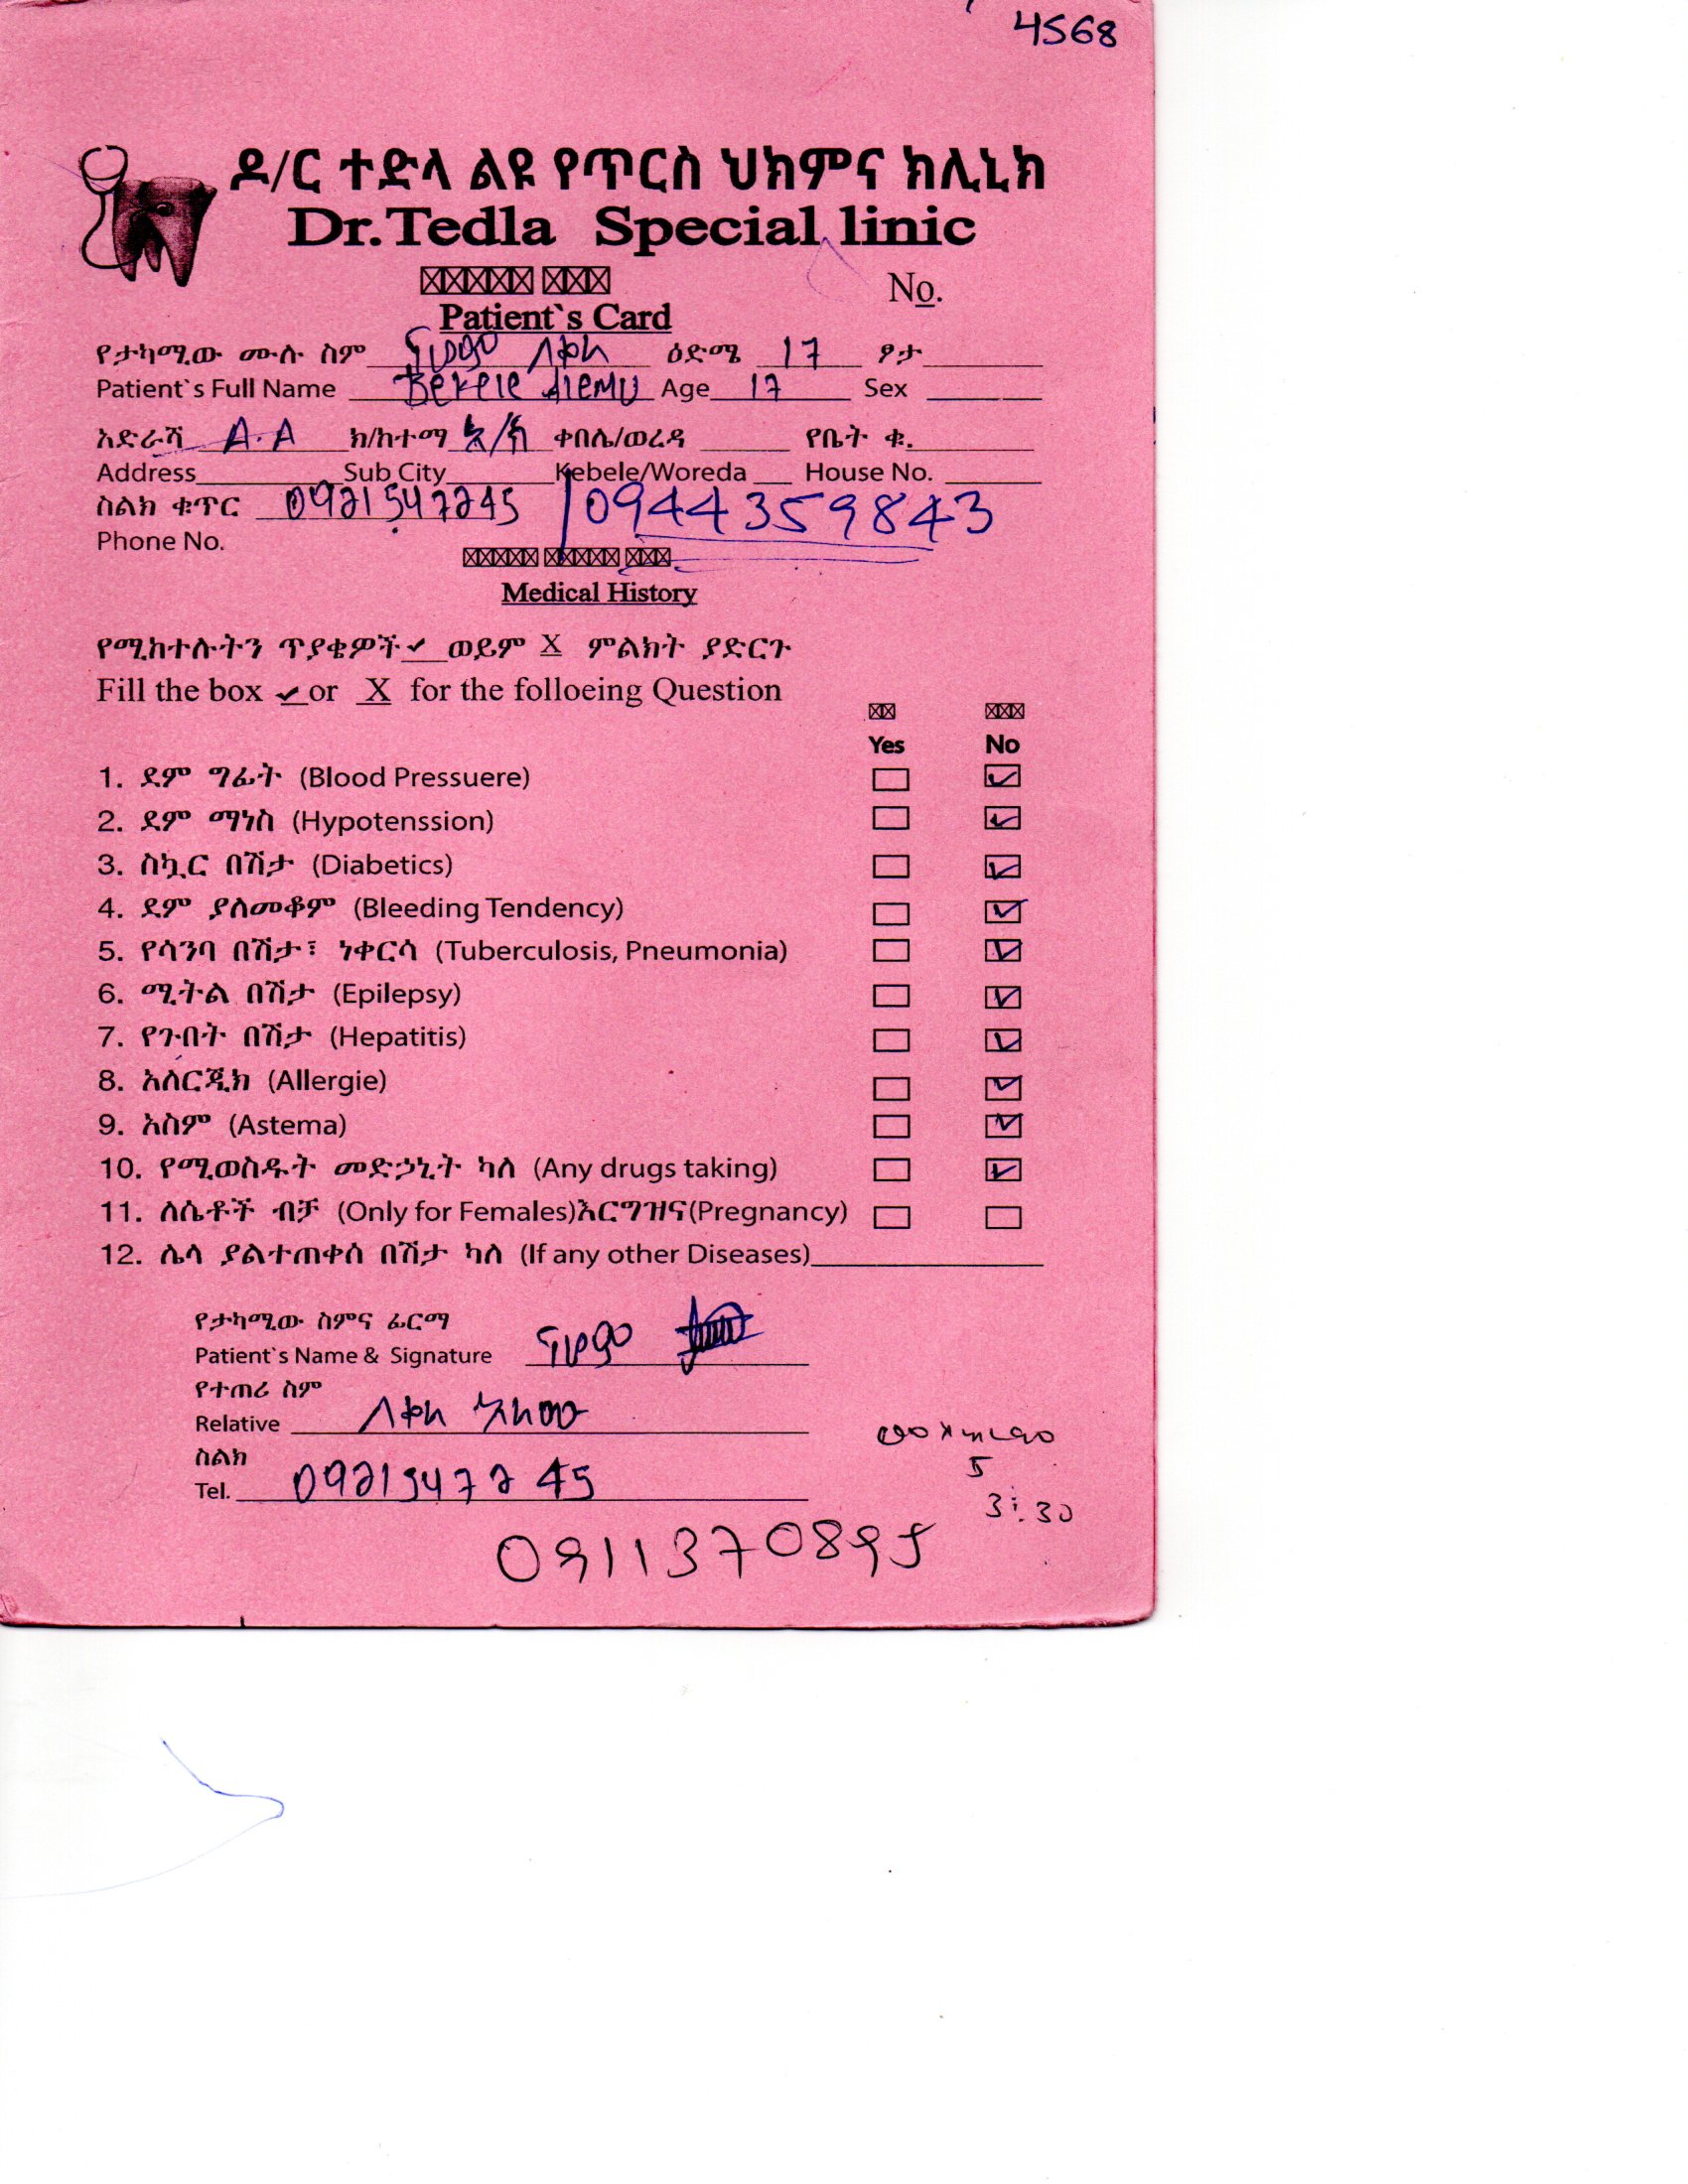 4568
ዶ/ር ተድላ ልዩ የጥርስ ህክምና ክሊኒክ
Dr.Tedla Special linic
No.
Patient`s Card
የታካሚው ሙሉ ስም ዕድሜ 17 ፆታ
Patient`s Full Name Bekele Alemu Age 17 Sex
አድራሻ A.A ክ/ከተማ ቀበሌ/ወረዳ የቤት ቁ.
Address Sub City Kebele/Woreda House No.
ስልክ ቁጥር 0921547245 / 0944359843
Phone No.
Medical History
የሚከተሉትን ጥያቄዎች ✓ ወይም X ምልክት ያድርጉ
Fill the box ✓ or X for the folloeing Question
Yes No
1. ደም ግፊት (Blood Pressuere) ✓
2. ደም ማነስ (Hypotenssion) ✓
3. ስኳር በሽታ (Diabetics) ✓
4. ደም ያለመቆም (Bleeding Tendency) ✓
5. የሳንባ በሽታ፣ ነቀርሳ (Tuberculosis, Pneumonia) ✓
6. ሚትል በሽታ (Epilepsy) ✓
7. የጉበት በሽታ (Hepatitis) ✓
8. አለርጂክ (Allergie) ✓
9. አስም (Astema) ✓
10. የሚወስዱት መድኃኒት ካለ (Any drugs taking) ✓
11. ለሴቶች ብቻ (Only for Females)እርግዝና(Pregnancy)
12. ሌላ ያልተጠቀሰ በሽታ ካለ (If any other Diseases)
የታካሚው ስምና ፊርማ
Patient`s Name & Signature
የተጠሪ ስም
Relative በቀለ አለሙ
ስልክ
Tel. 0921547245
5
3:30
0911370895